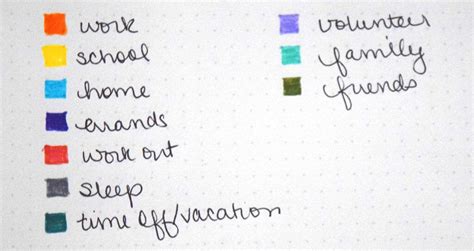 work
school
home
errands
work out
sleep
time off/vacation
volunteer
family
friends